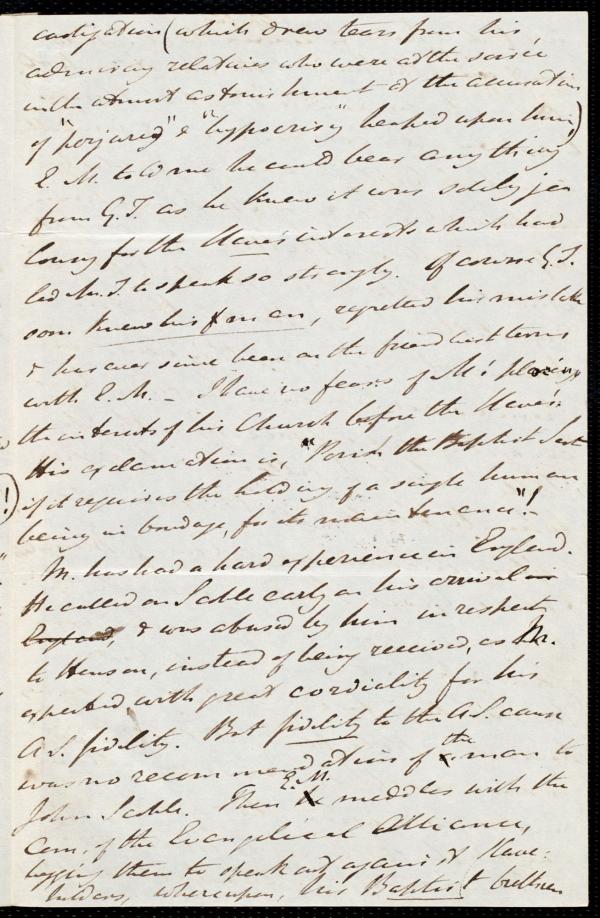 castigation (which drew tears from his
admiring relatives who were at the soirée
in the utmost astonishment at the accusation
of "perjury" & "hypocrisy" heaped upon him)
E. M. told me he could bear anything
from G. T. as he knew it was solely jea
lousy for the slave's interests which had
led Mr. T. to speak so strongly. Of course G. T.
soon knew his man, regretted his mistake
& has ever since been on the friendliest terms
with E. M. – I have no fears of M's placing
the interests of his Church before the slave's.
His exclamation is, "Perish the Baptist Sect
if it requires the holding of a single human
being in bondage, for its maintenance"!–
M. has had a hard experience in England.
He called on Scoble early on his arrival in
England, & was abused by him in respect
to Henson, instead of being received, as Mr.
expected, with great cordiality for his
A. S. fidelity. But fidelity to the A. S. cause
was no recommendation of the man to
John Scoble. Then E. M. meddles with the
Com. of the Evangelical Alliance,
begging them to speak out against slave-
holders, whereupon, his Baptist brethren